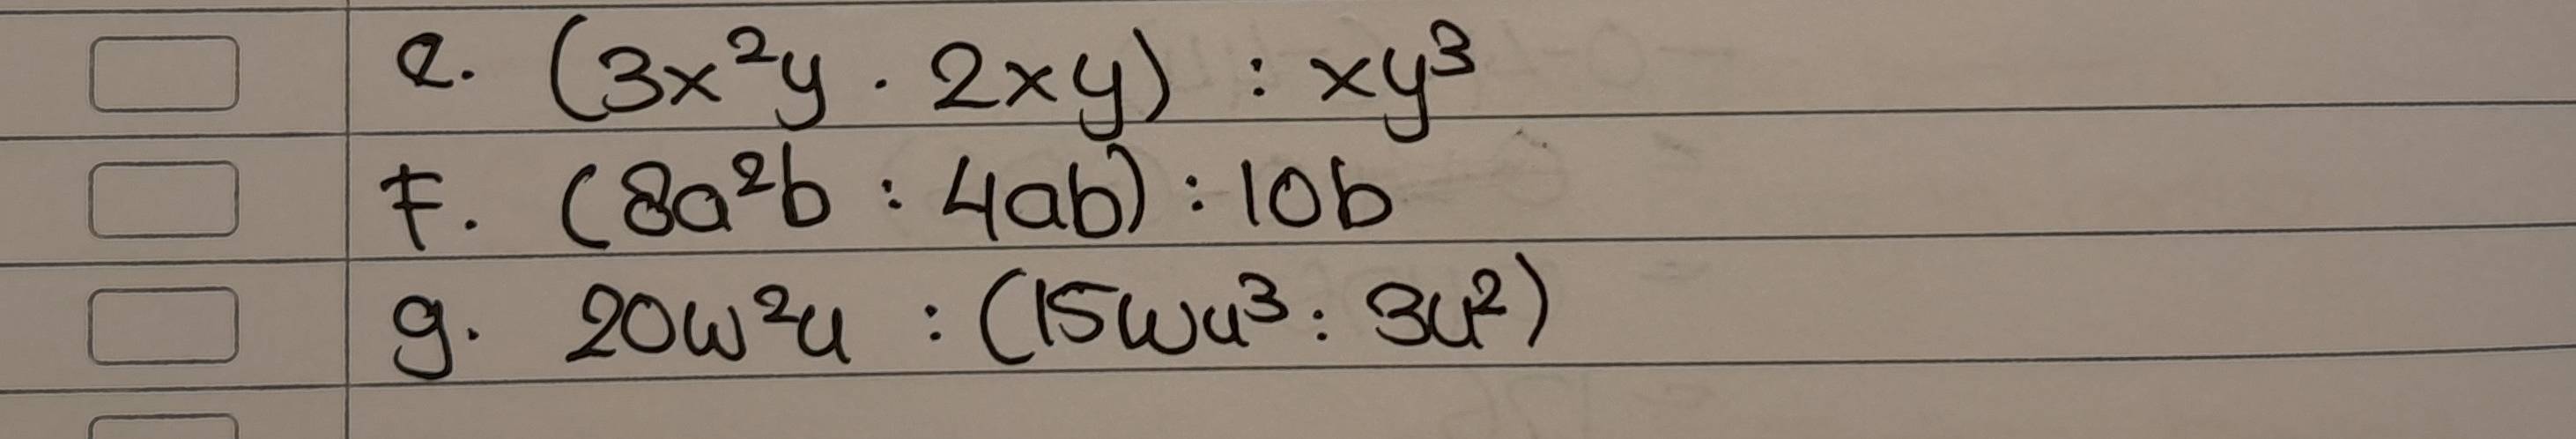 e. (3x²y · 2xy) : xy³
f. (8a²b : 4ab) : 10b
g. 20w²u : (15wu³ : 3u²)